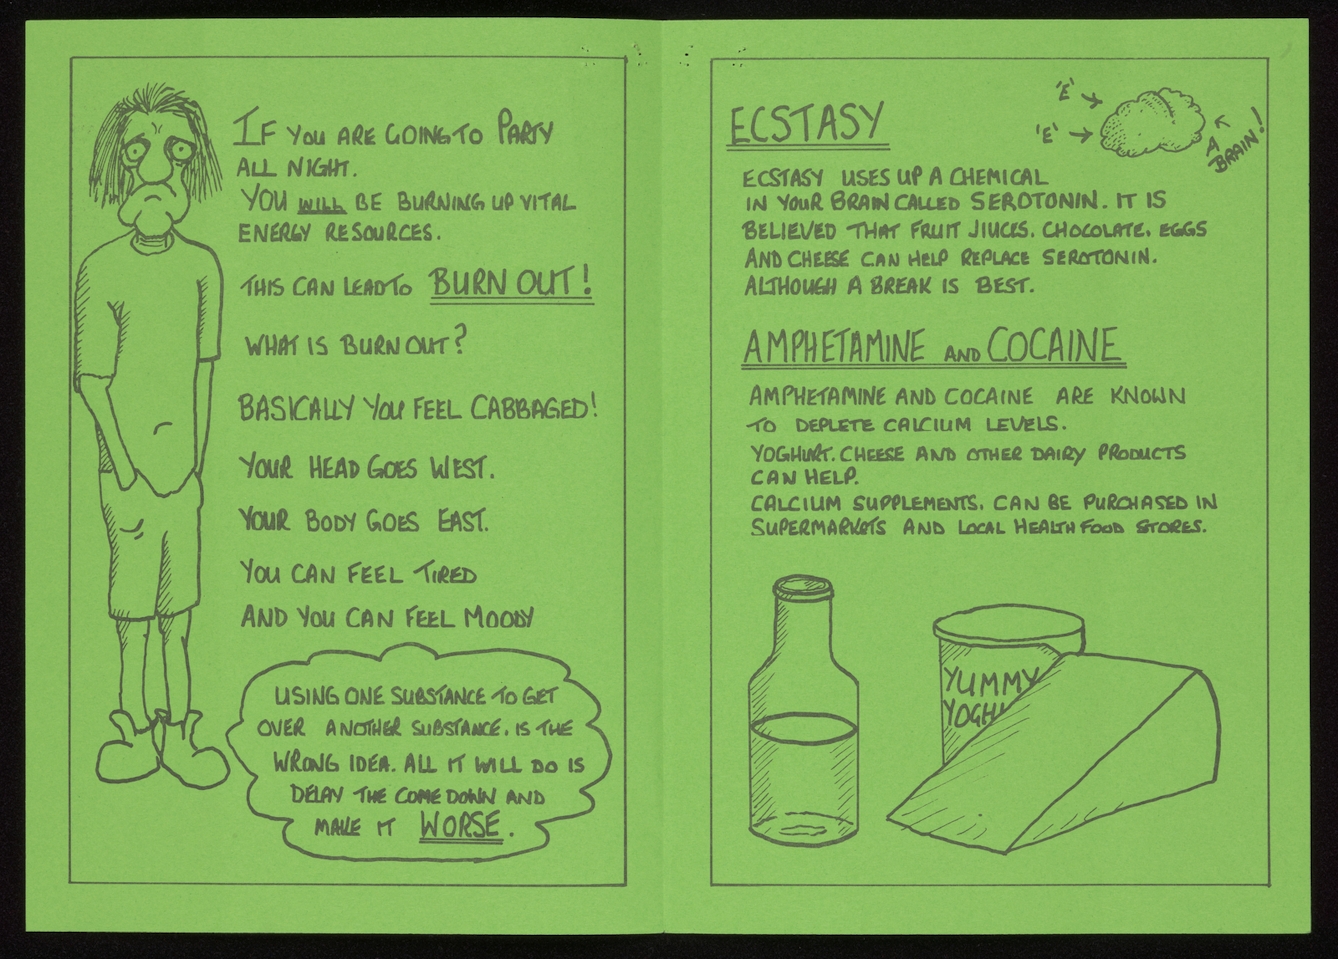 IF YOU ARE GOING TO PARTY
ALL NIGHT.
YOU WILL BE BURNING UP VITAL
ENERGY RESOURCES.
THIS CAN LEAD TO BURN OUT!
WHAT IS BURN OUT?
BASICALLY YOU FEEL CABBAGED!
YOUR HEAD GOES WEST.
YOUR BODY GOES EAST.
YOU CAN FEEL TIRED
AND YOU CAN FEEL MOODY
USING ONE SUBSTANCE TO GET
OVER ANOTHER SUBSTANCE, IS THE
WRONG IDEA. ALL IT WILL DO IS
DELAY THE COME DOWN AND
MAKE IT WORSE.
ECSTASY
'E'
'E'
A
BRAIN!
ECSTASY USES UP A CHEMICAL
IN YOUR BRAIN CALLED SEROTONIN. IT IS
BELIEVED THAT FRUIT JIUCES, CHOCOLATE, EGGS
AND CHEESE CAN HELP REPLACE SEROTONIN.
ALTHOUGH A BREAK IS BEST.
AMPHETAMINE AND COCAINE
AMPHETAMINE AND COCAINE ARE KNOWN
TO DEPLETE CALCIUM LEVELS.
YOGHURT, CHEESE AND OTHER DAIRY PRODUCTS
CAN HELP.
CALCIUM SUPPLEMENTS, CAN BE PURCHASED IN
SUPERMARKETS AND LOCAL HEALTH FOOD STORES.
YUMMY
YOGHU